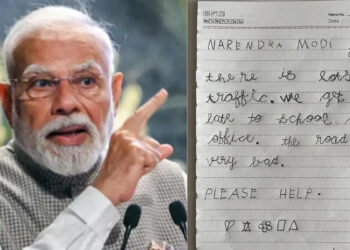 NARENDRA MODI
there is lots
traffic. we get
late to school
office. the road
very bad.
PLEASE HELP.